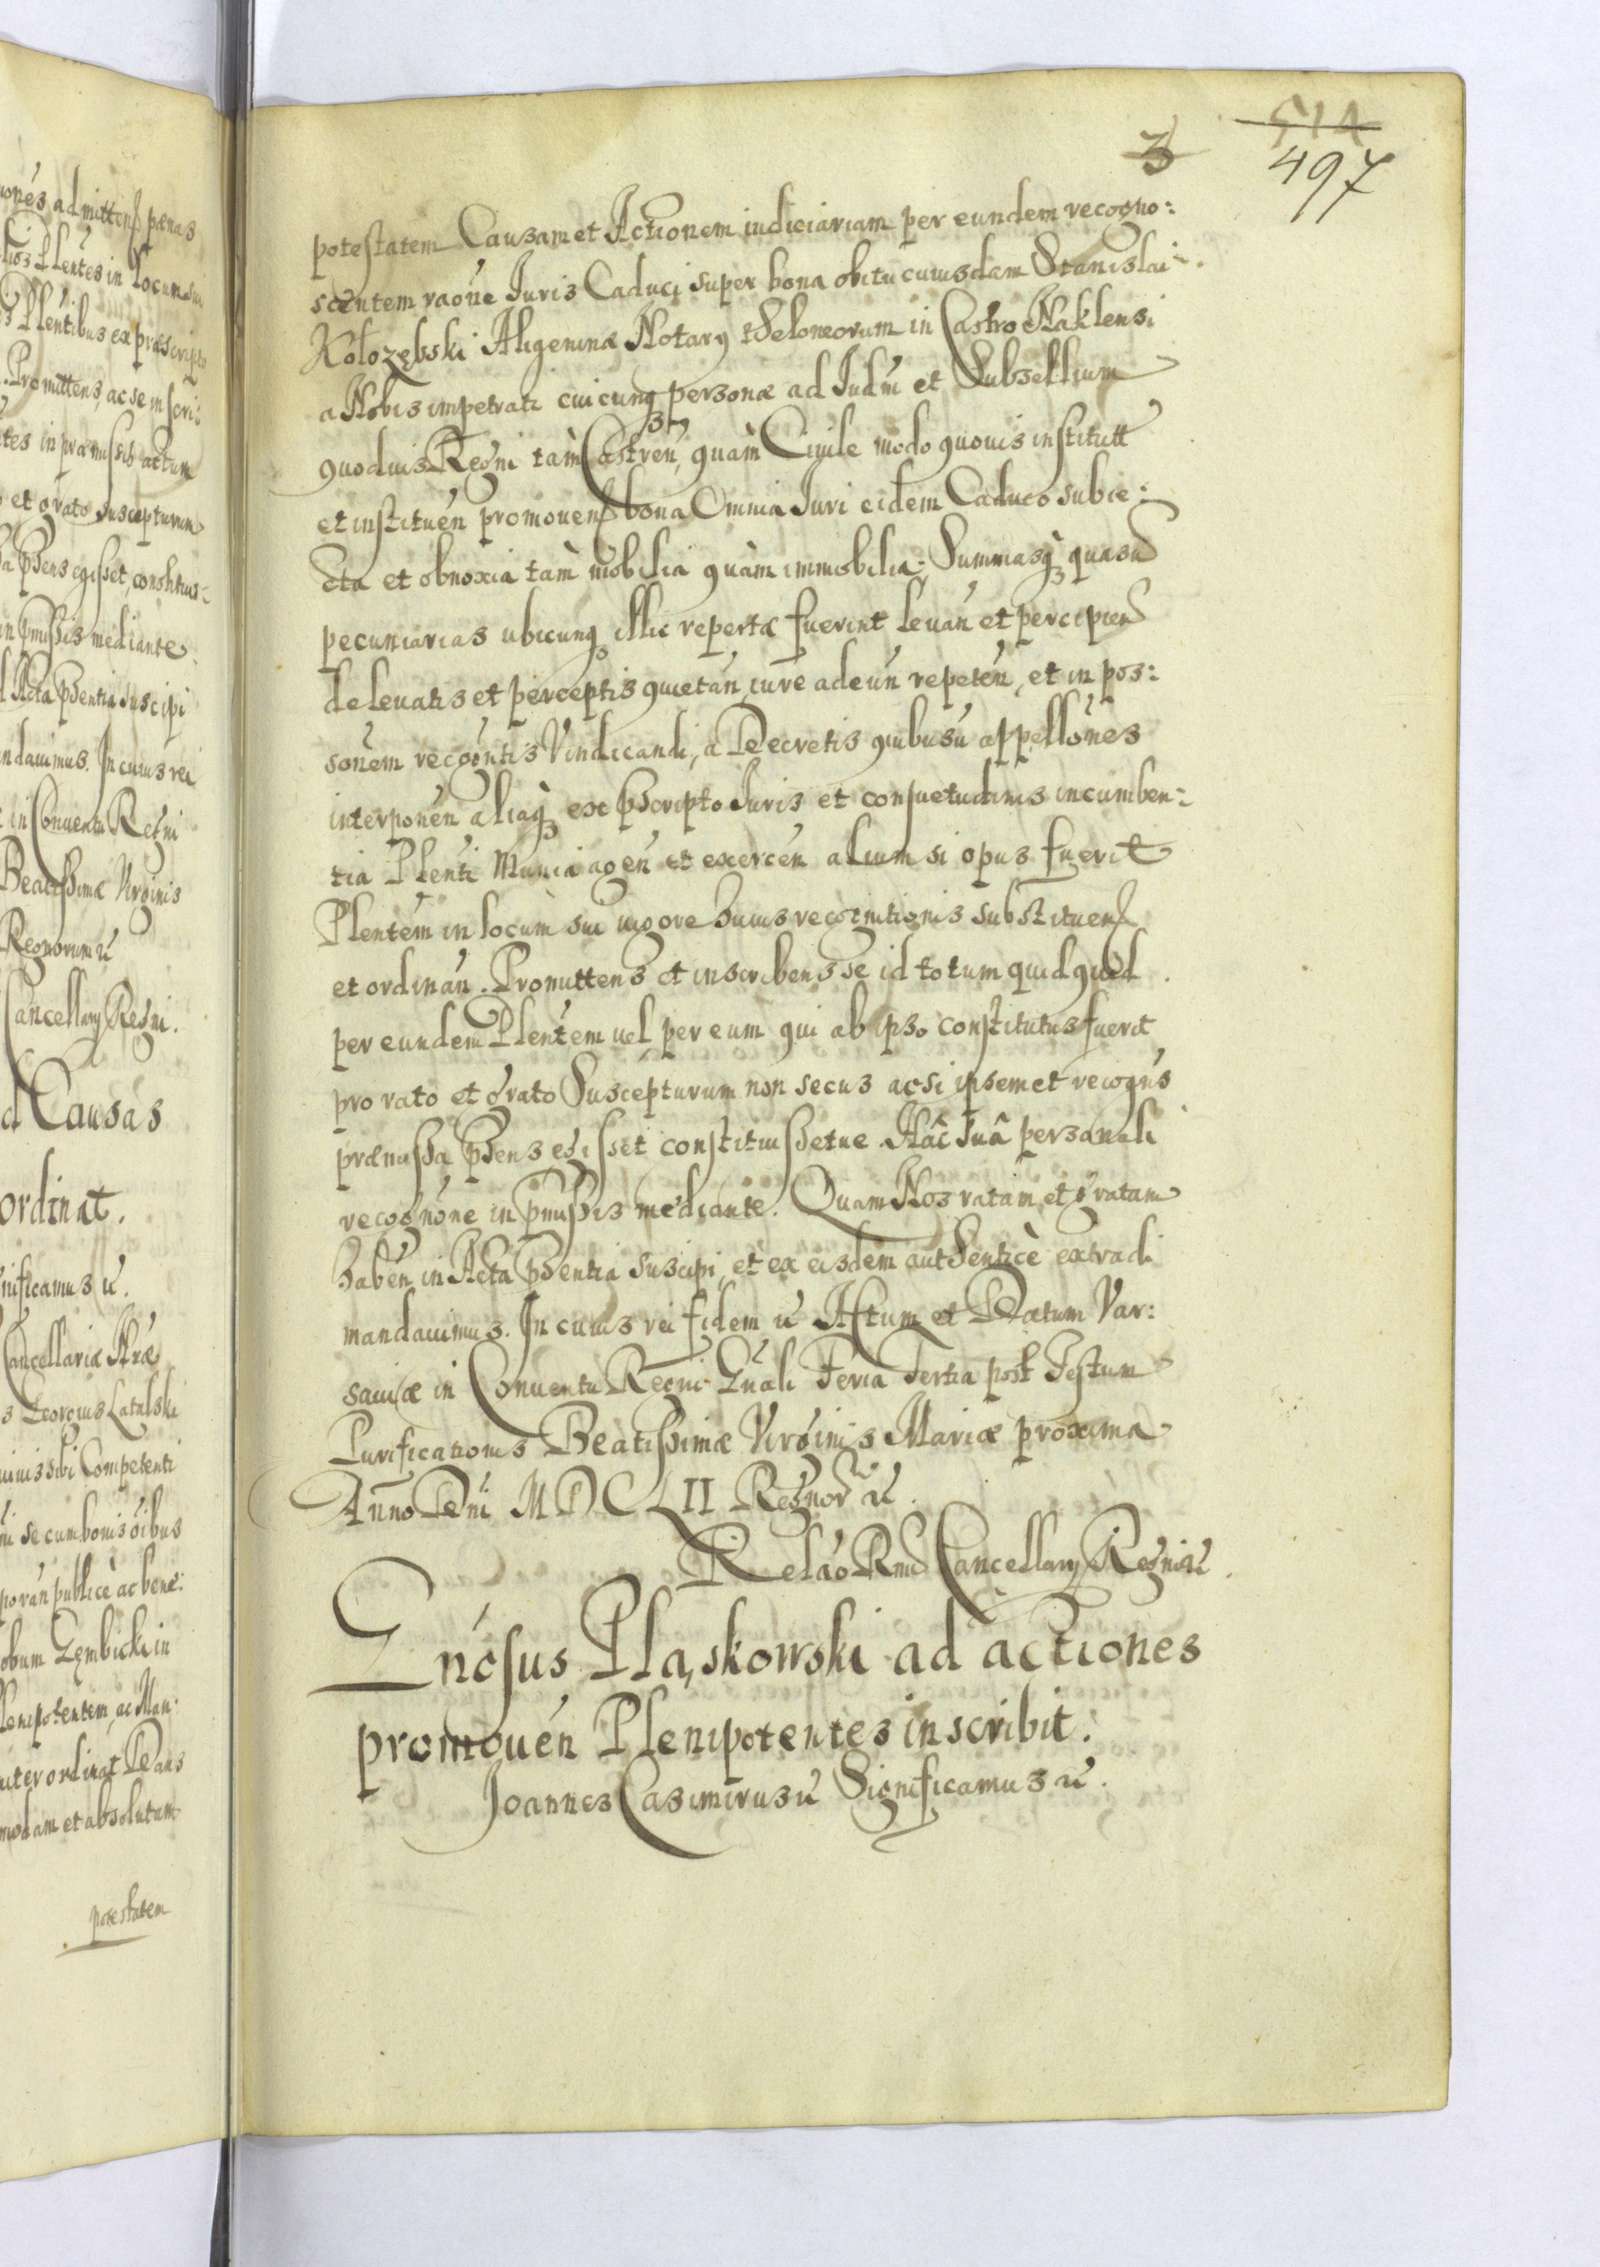 514
497
3
potestatem Causam et Actionem iudiciariam per eundem recogno:
scentem raone Iuris Caduci super bona obitu cuiusdam Stanislai
Kołozębski Aligeninæ Notarij theloneorum in Castro Naklensi
a Nobis impetrati cuicunq personæ ad Iudm et Subsellium
quoduis Regni tàm Castren, quàm Ciuile modo quouis institutt
et instituen promouend bona Omnia Iuri eidem Caduco subie:
cta et obnoxia tàm mobilia quàm immobilia, Summasq quasu
pecuniarias ubicunq illic repertæ fuerint leuan et percipien
de leuatis et perceptis quietan, iure adeun repeten, et in pos:
sonem recogntis Vindicandi, a Decretis quibusu appellones
interponen aliaq ex pscripto Iuris et consuetudinis incumben:
tia Plenti Munia agen et exercen alium si opus fuerit
Plentem in locum sui uigore huius recognitionis substituend
et ordinan. Promittens et inscribens se id totum quidquid
per eundem Plentem uel per eum qui ab ipso constitutus fuerit
pro rato et grato Suscepturum non secus acsi ipsemet recogns
præmissa psens egisset constituissetue Hâc suâ personali
recognone in pmissis mediante. Quam Nos ratam et gratam
haben in Acta psentia suscipi, et ex eisdem authenticè extradi
mandauimus. In cuius rei fidem u Actum et Datum Var:
sauiæ in Conuentu Regni Gnali Feria Tertia post Festum
Purificationis Beatissimæ Virginis Mariæ proxima
Anno Dni MDCLII Regnor u.
Relao Rmd Cancellarij Regni u.
Gnosus Pląskowski ad actiones
promouen Plenipotentes inscribit.
Joannes Casimirus u Significamus u.
ones admittend pænas
Plentes in locum sui
Plentibus ex præscripto
Promittens, ac se inscri:
tes in præmissis actum
et grato suscepturum
psens egisset, constituis:
in pmissis mediante
Acta psentia suscipi
ndauimus. In cuius rei
in Conuentu Regni
Beatissimæ Virginis
Regnorum u
Cancellarij Regni.
d Causas
ordinat.
nificamus u.
Cancellariæ Nræ
s Georgius Latalski
uiuis sibi Competenti
ni se cum bonis oibus
poran publicè ac bene:
obum Zembicki in
lenipotentem, ac Man:
niter ordinat Dans
modam et absolutam
potestatem